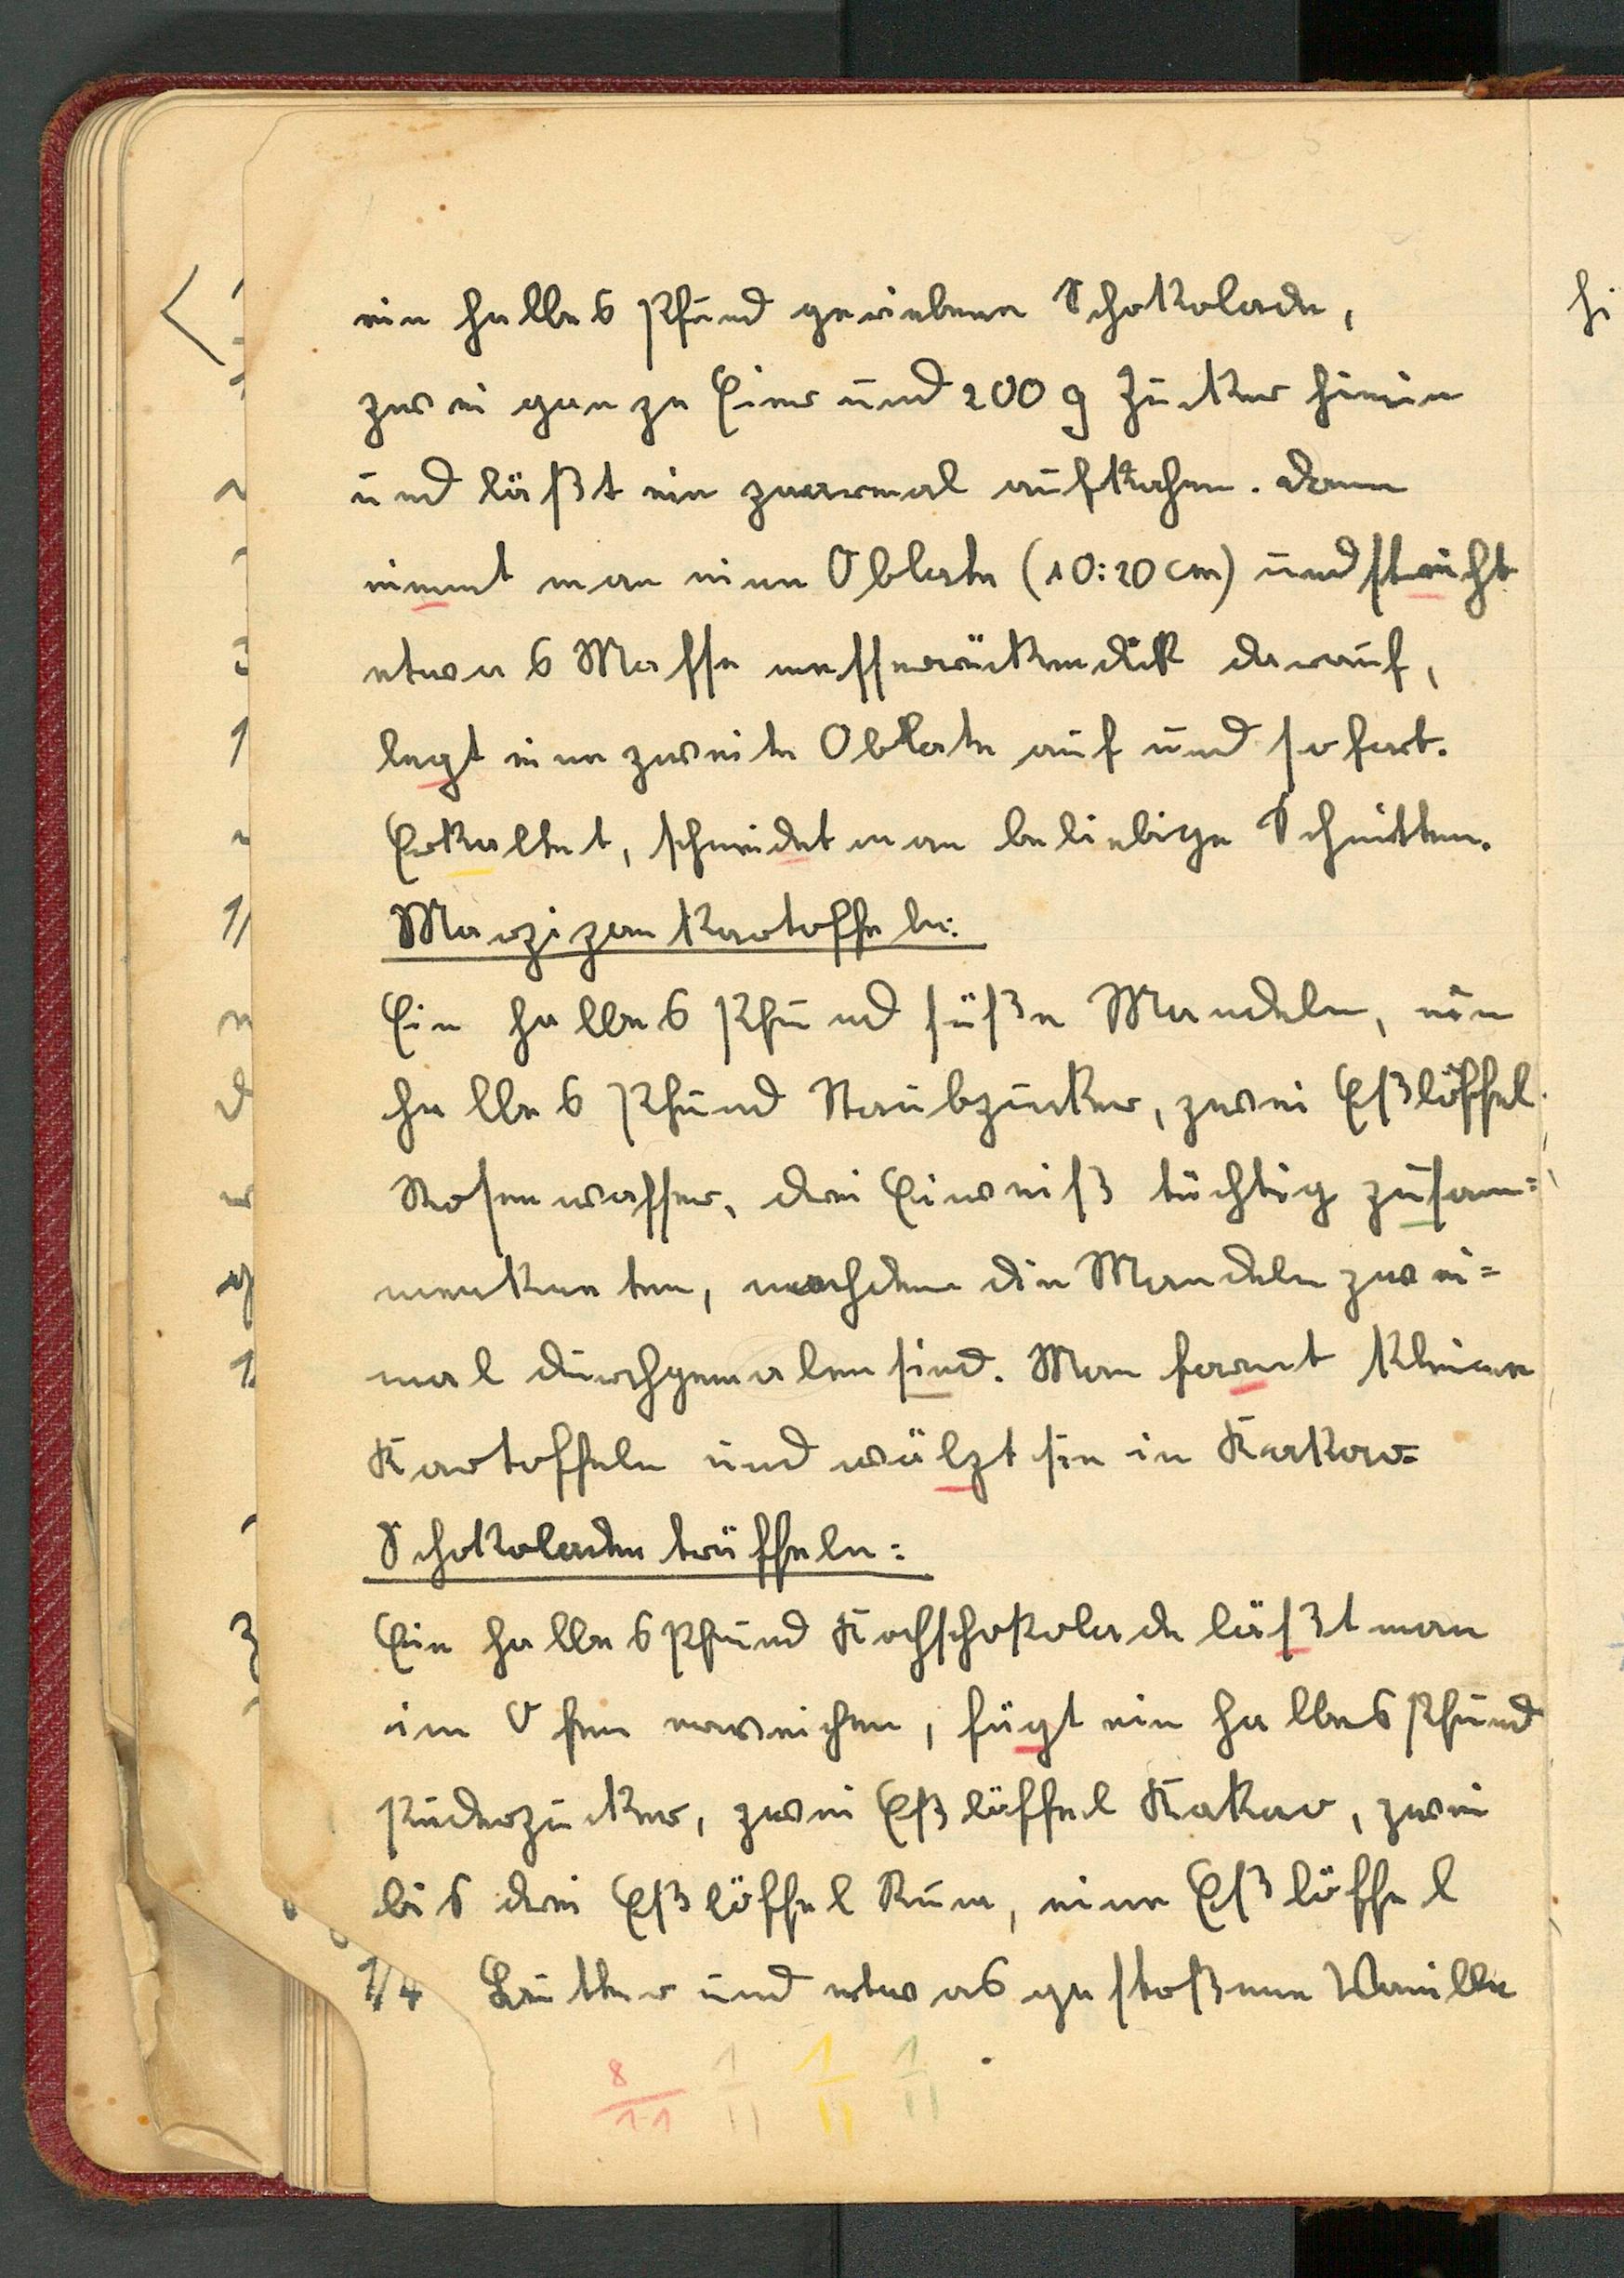 ein halbes Pfund geriebene Schokolade,
zwei ganze Eier und 200 g Zucker hinein
und läßt ein paarmal aufkochen. Dann
nimmt man eine Oblate (10:20 cm) und streicht
etwas Masse messerrückendick darauf,
legt eine zweite Oblate auf und sofort.
Erkaltet, schneidet man beliebige Schnitten.
Marzipankartoffeln:
Ein halbes Pfund süße Mandeln, ein
halbes Pfund Staubzucker, zwei Eßlöffel
Rosenwasser, drei Eiweiß tüchtig zusam=
menkneten, nachdem die Mandeln zwei=
mal durchgemalen sind. Man formt kleine
Kartoffeln und wälzt sie in Kakao.
Schokoladentrüffeln:
Ein halbes Pfund Kochschokolade läßt man
im Ofen erweichen, fügt ein halbes Pfund
Puderzucker, zwei Eßlöffel Kakao, zwei
bis drei Eßlöffel Rum, eine Eßlöffel
1/4 Butter und etwas gestoßene Vanille
8/11 1/11 1/11 1/11